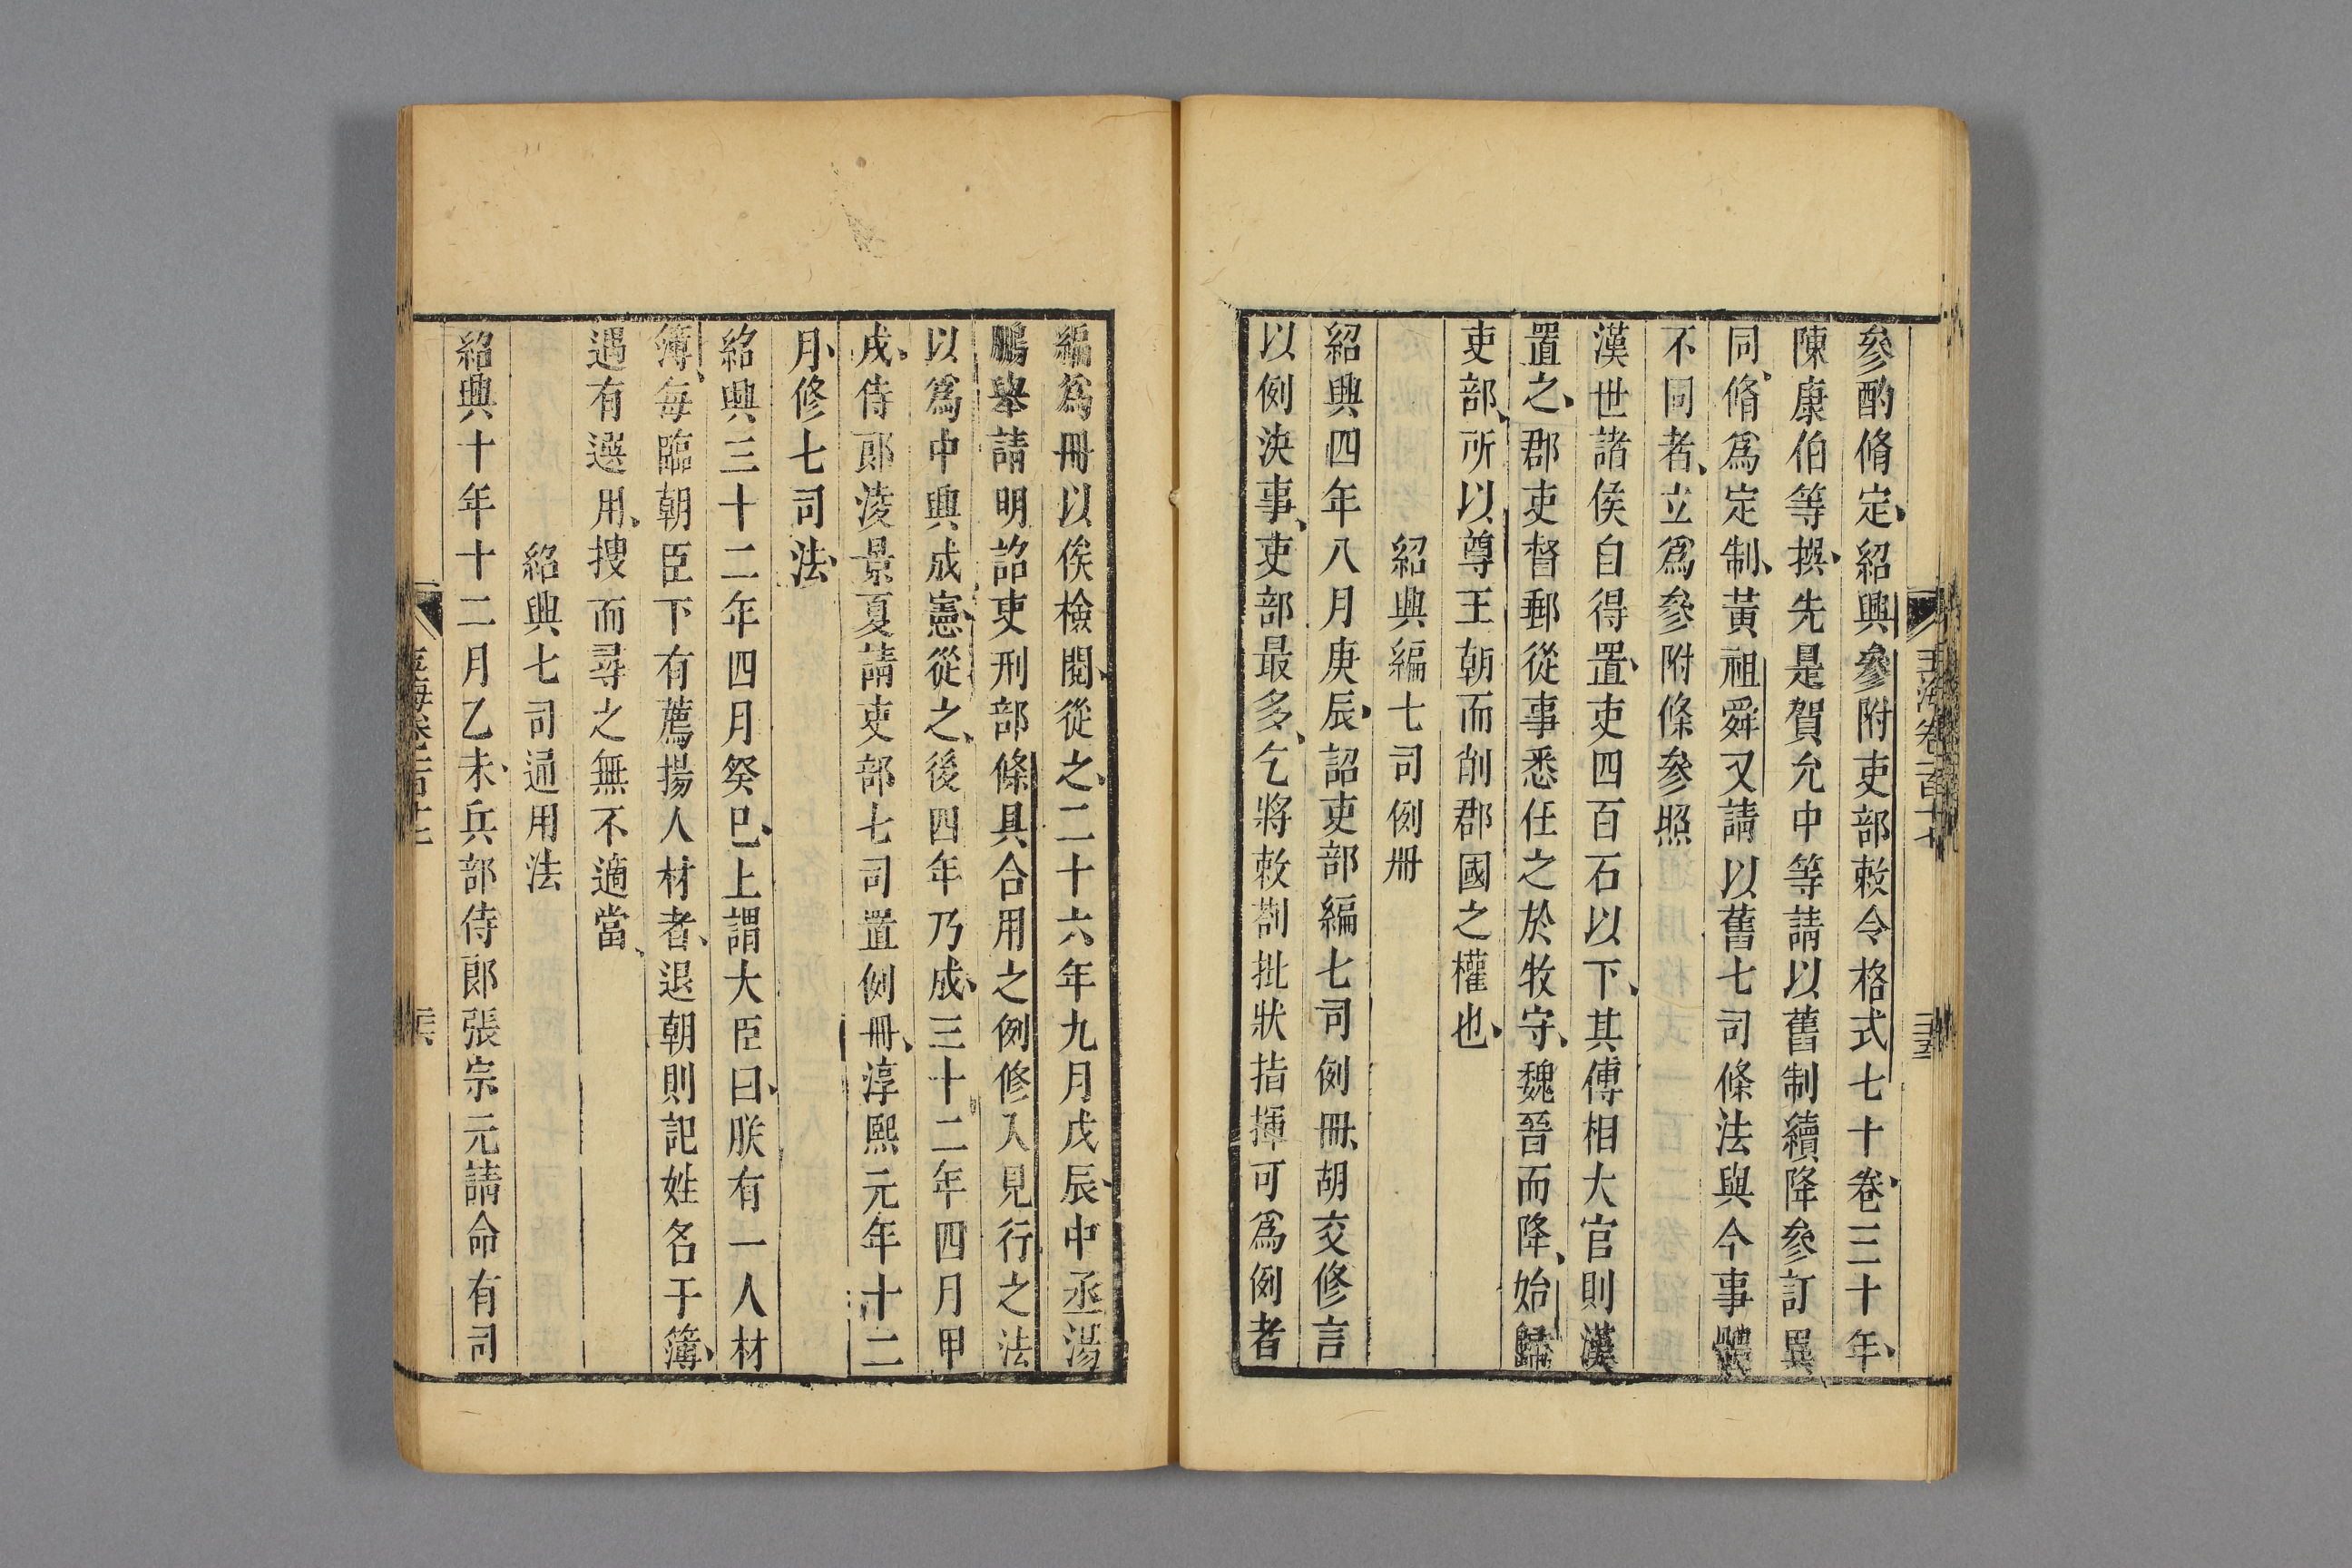 玉海卷一百十七
三五
參酌脩定紹興參附吏部敕令格式七十卷三十年
陳康伯等撰先是賀允中等請以舊制續降參訂異
同脩爲定制黃祖舜又請以舊七司條法與今事體
不同者立爲參附條參照
漢世諸侯自得置吏四百石以下其傅相大官則漢
置之郡吏督郵從事悉任之於牧守魏晉而降始歸
吏部所以尊王朝而削郡國之權也
紹興編七司例册
紹興四年八月庚辰詔吏部編七司例冊胡交修言
以例決事吏部最多乞將敕劄批狀指揮可爲例者
編爲冊以俟檢閱從之二十六年九月戊辰中丞湯
鵬舉請明詔吏刑部條具合用之例修入見行之法
以爲中興成憲從之後四年乃成三十二年四月甲
戌侍郎淩景夏請吏部七司置例冊淳熙元年十二
月修七司法
紹興三十二年四月癸巳上謂大臣曰朕有一人材
簿每臨朝臣下有薦揚人材者退朝則記姓名于簿
遇有選用搜而尋之無不適當
紹興七司通用法
紹興十年十二月乙未兵部侍郎張宗元請命有司